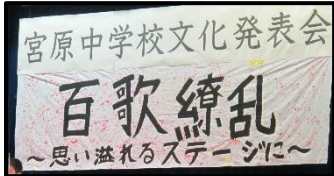 宮原中学校文化発表会
百歌繚乱
〜思い溢れるステージに〜